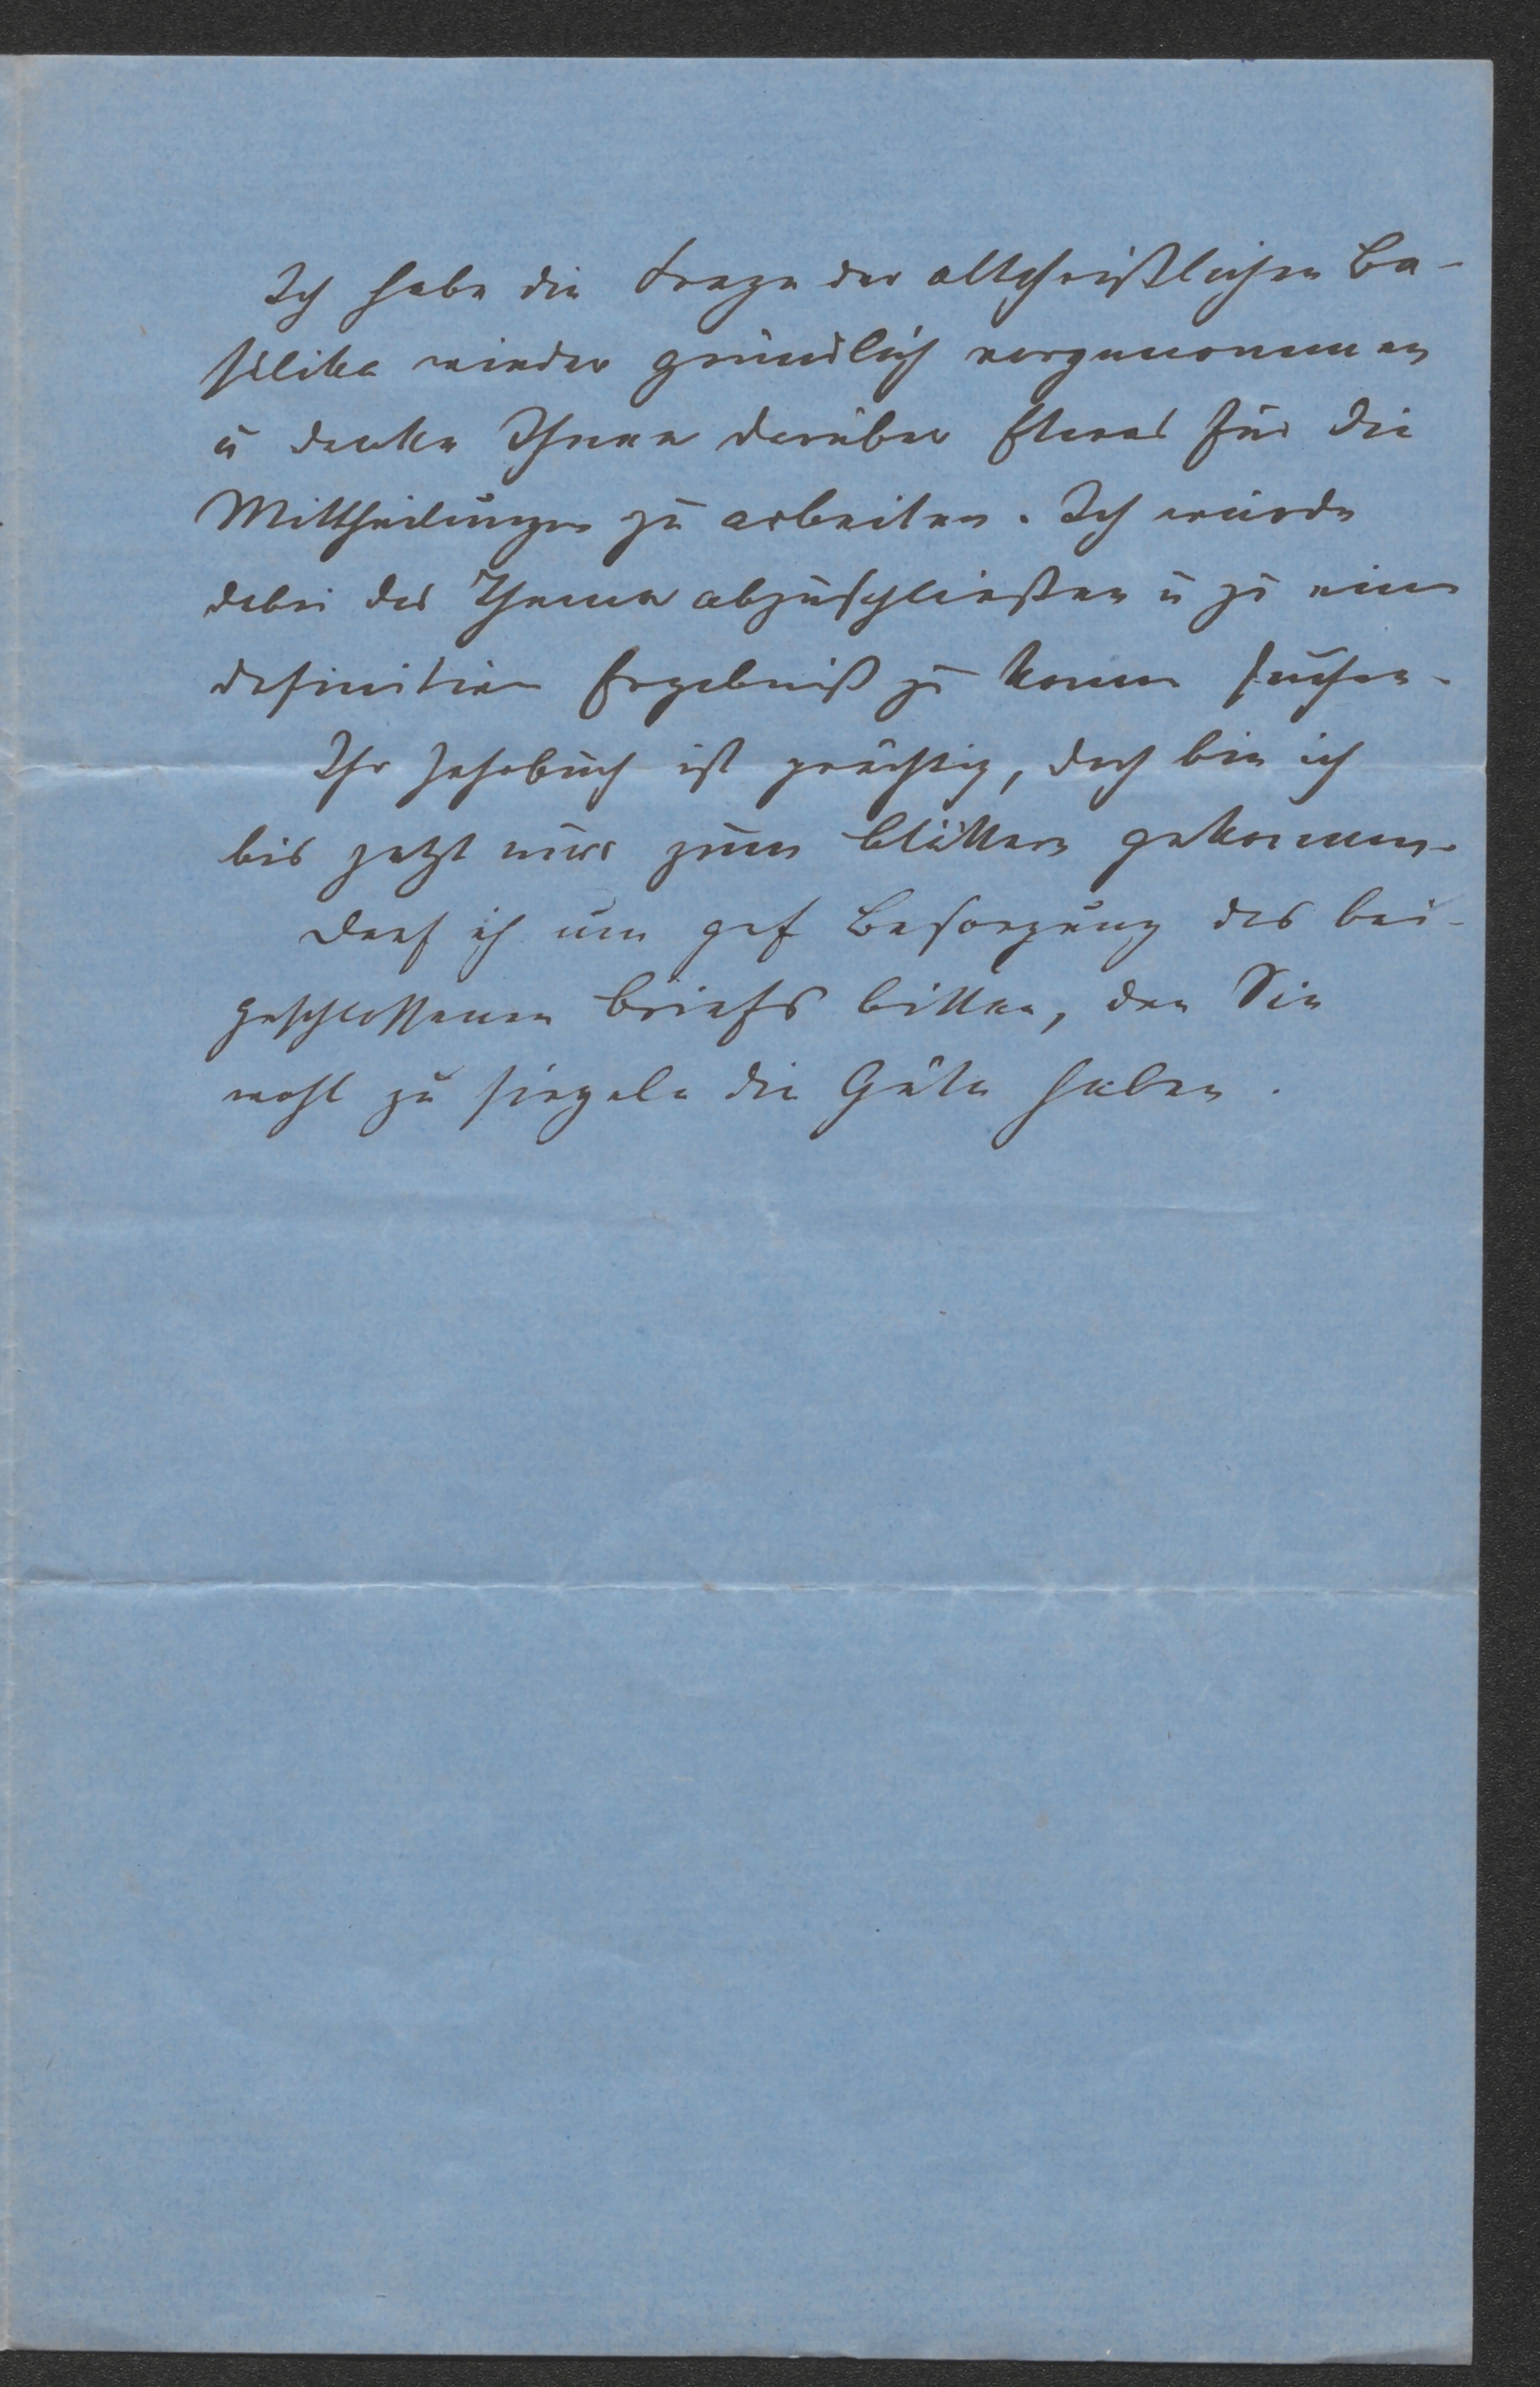 Ich habe die Frage der altchristlichen Ba-
silika wieder gründlich vorgenommen
u denke Ihnen darüber Etwas für die
Mittheilungen zu arbeiten. Ich würde
dabei das Thema abzuschließen u zu einem
definitiven Ergebniß zu kommen suchen.
Ihr Jahrbuch ist prächtig, doch bin ich
bis jetzt nur zum blättern gekommen.
Darf ich um gef Besorgung des bei-
geschlossenen Briefs bitten, den Sie
wohl zu siegeln die Güte haben.